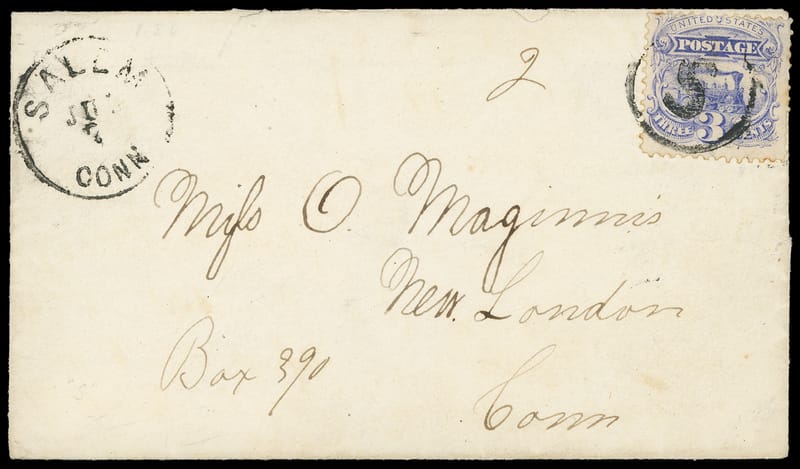 SALEM
CONN
UNITED STATES
POSTAGE
THREE 3 CENTS
2
Miſs O. Maginnis
New London
Box 390
Conn